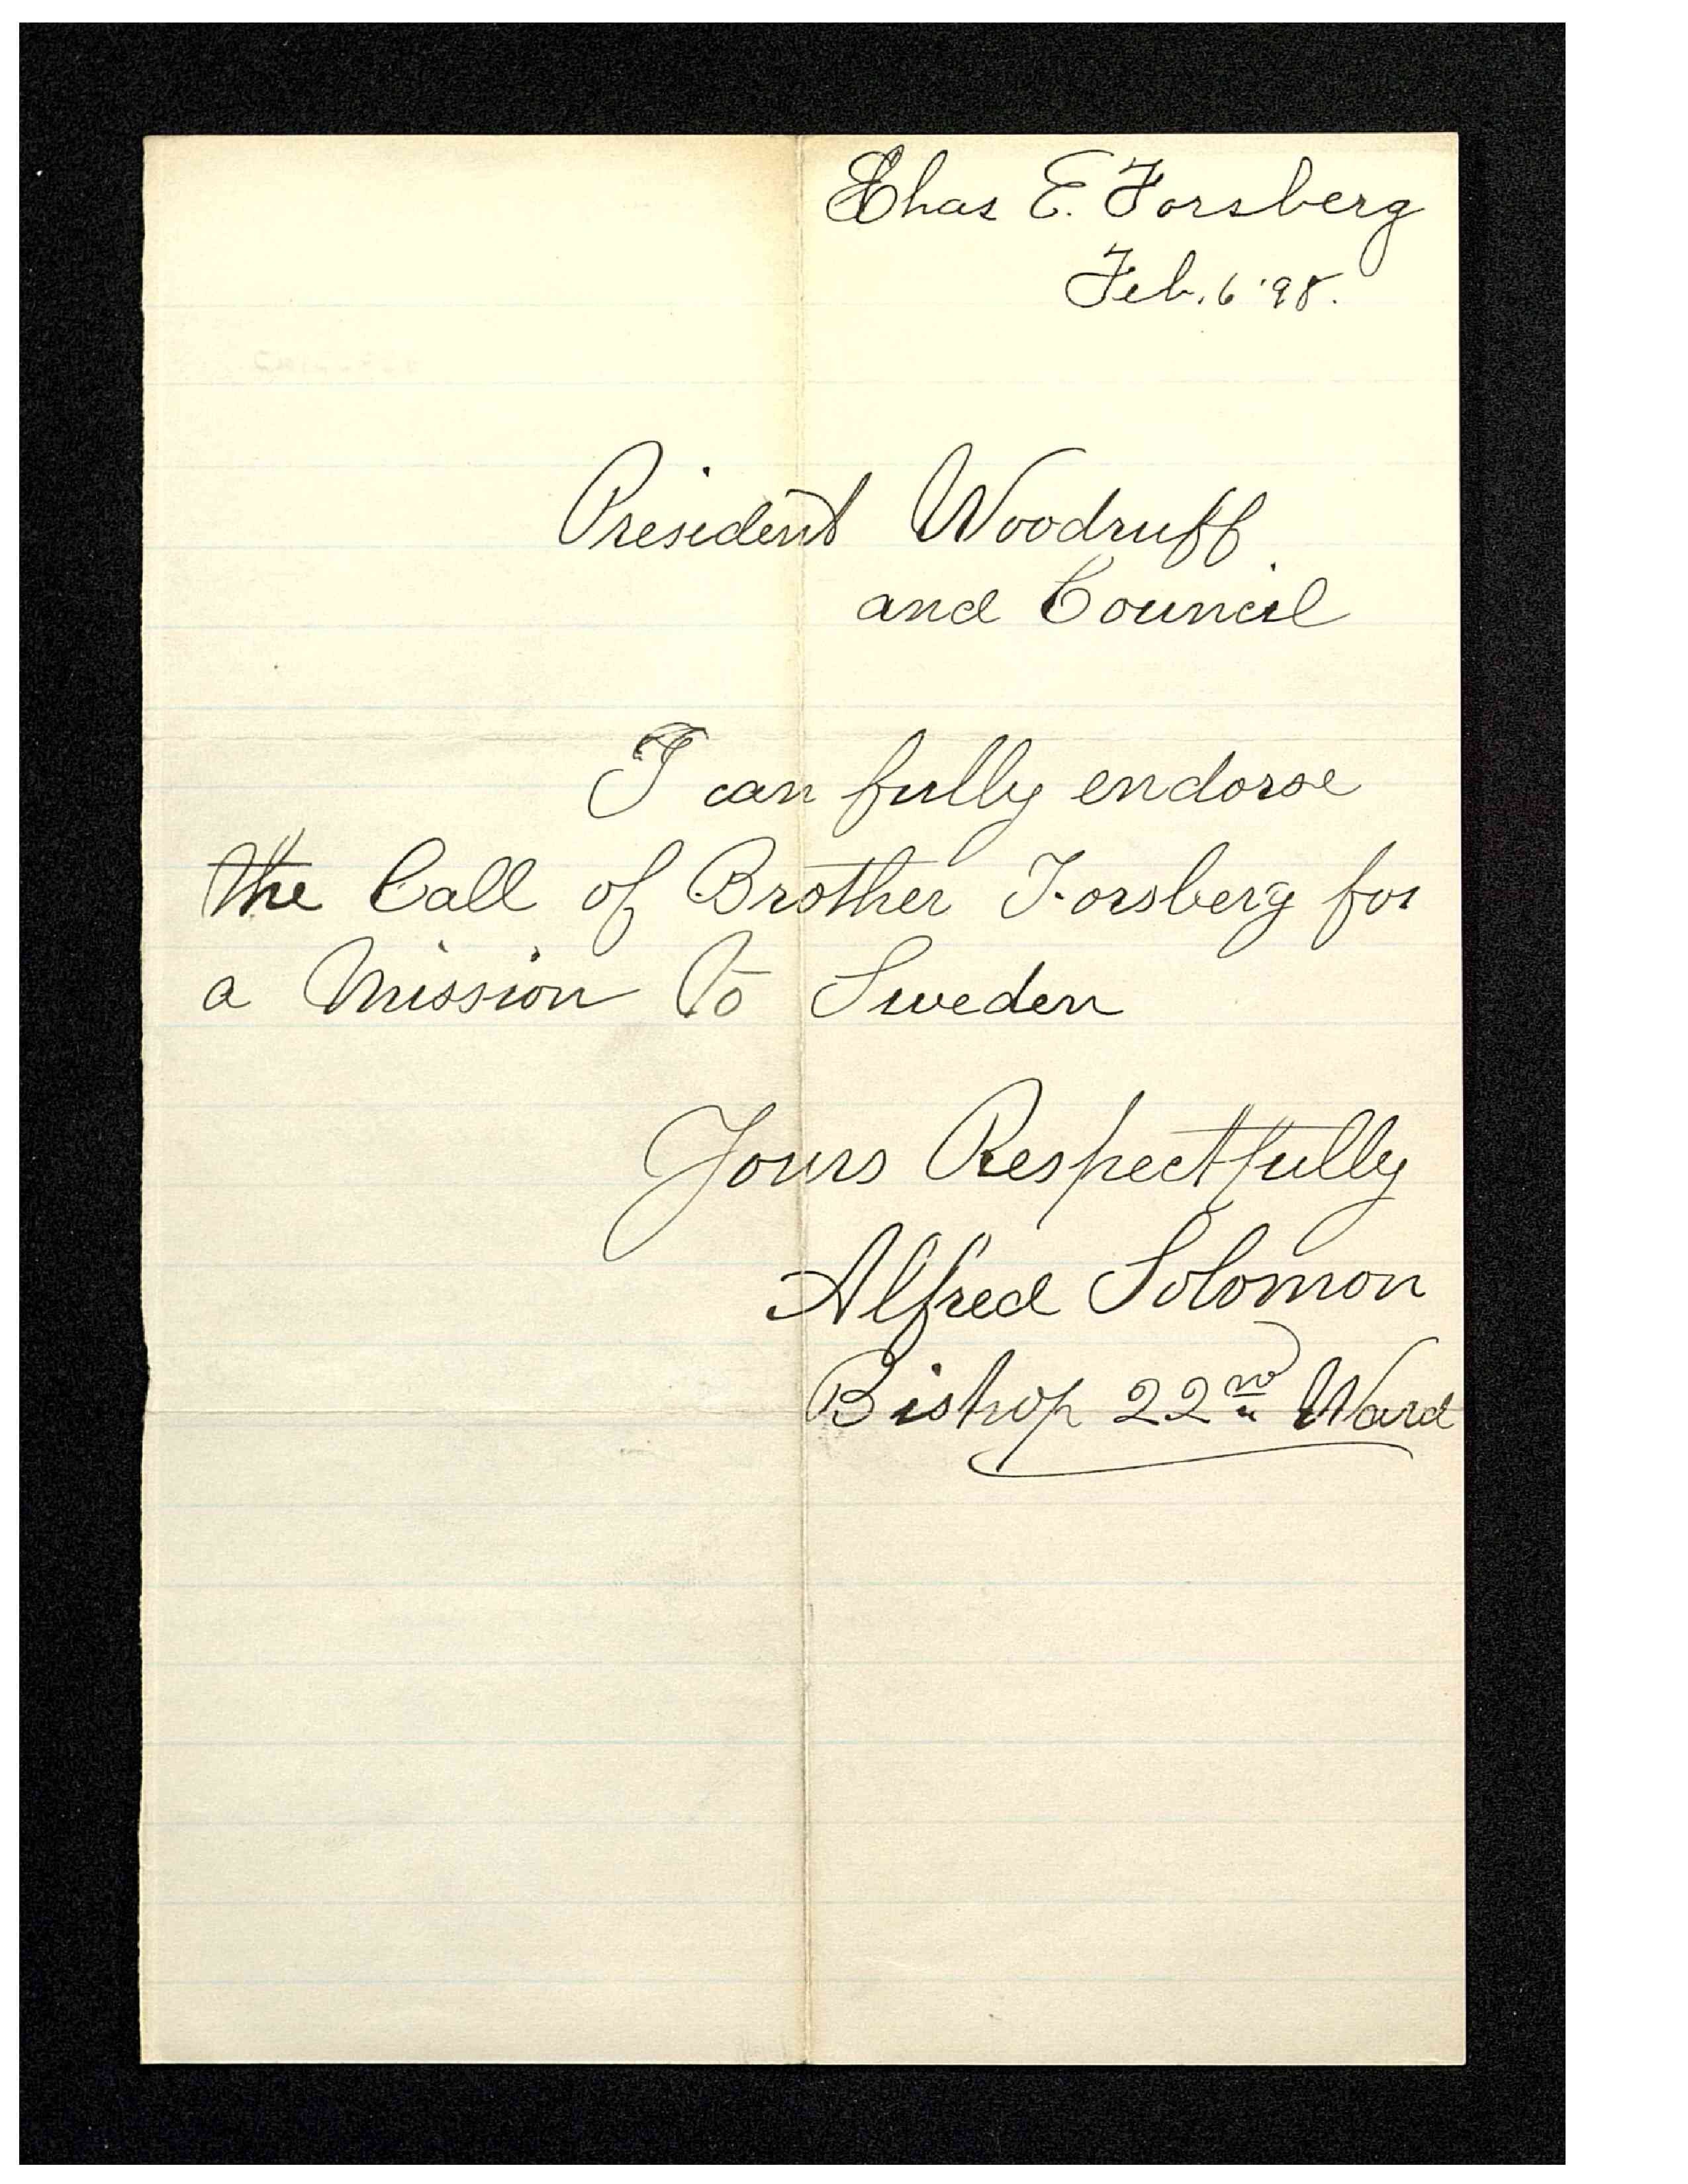 Chas E. Forsberg
Feb. 6 '98.
President Woodruff
and Council
I can fully endorse
the Call of Brother Forsberg for
a Mission To Sweden
Yours Respectfully
Alfred Solomon
Bishop 22nd Ward